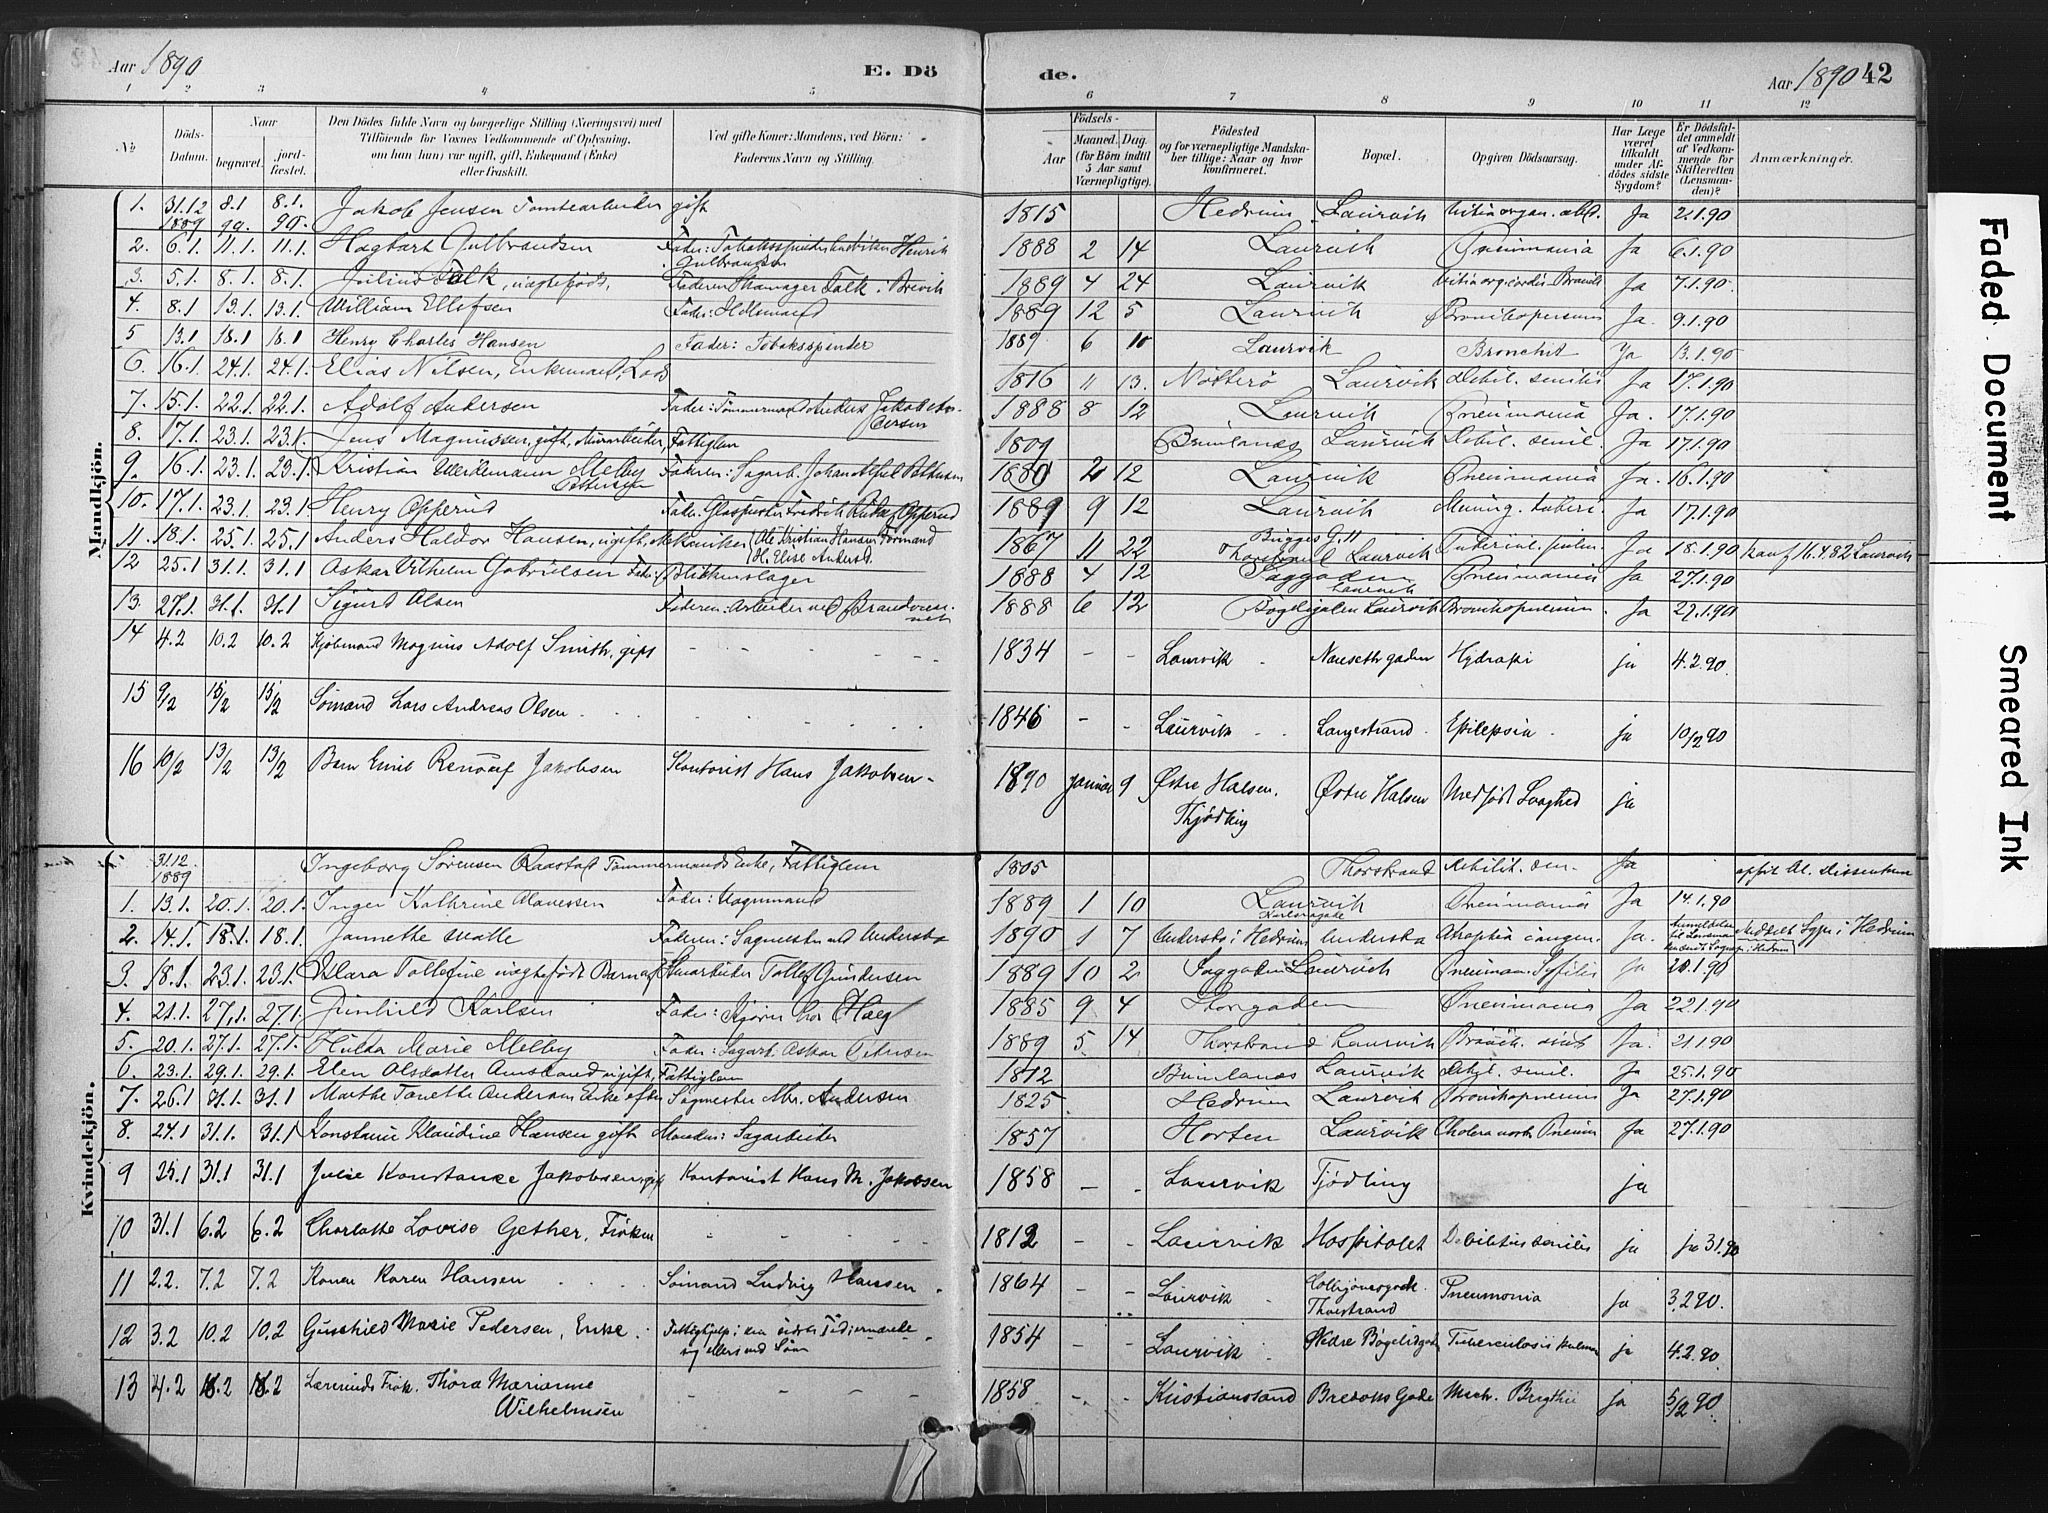 Aar 1890
E. Dö
de.
Aar 1890 42
1 2 3 4 5 6 7 8 9 10 11 12
№
Döds-Datum.
Naar
begravet.
jord-fæstet.
Den Dödes fulde Navn og borgerlige Stilling (Næringsvei) med
Tilföiende for Voxnes Vedkommende af Oplysning,
om han (hun) var ugift, gift, Enkemand (Enke)
eller fraskilt.
Ved gifte Koner: Mandens, ved Börn:
Faderens Navn og Stilling.
Födsels-
Aar
Maaned. Dag.
(for Börn indtil
5 Aar samt
Værnepligtige).
Födested
og for værnepligtige Mandska-
ber tillige: Naar og hvor
konfirmeret.
Bopæl.
Opgiven Dödsaarsag.
Har Læge
været
tilkaldt
under Af-
dödes sidste
Sygdom?
Er Dödsfal-
det anmeldt
af Vedkom-
mende for
Skifteretten
(Lensman-
den)?
Anmærkninger.
Mandkjön.
1. 31.12 1889 8.1 90. 8.1. 90. Jakob Jensen Tomtearbeider gift 1815 Hedrum Laurvik Vitia organ. Ja 2.1.90
2. 6.1. 11.1. 11.1. Hagbart Gulbrandsen Fader: Henrik Gulbrandsen 1888 2 14 Laurvik Pneumonia Ja 6.1.90
3. 5.1. 8.1. 8.1. Julius Falk, uægtefødt, Faderen Skomager Falk. Brevik 1889 4 24 Laurvik Ja 7.1.90.
4. 8.1 13.1. 13.1. William Ellefsen Fader: 1889 12 5 Laurvik Ja. 9.1.90
5 13.1 18.1 18.1 Henry Charles Hansen Fader: Tobaksspinder 1889 6 10 Laurvik Bronchit Ja 13.1.90
6. 16.1. 24.1. 24.1. Elias Nilsen, Enkemand, Lods 1816 11 13. Nøtterö Laurvik Debil. senilis Ja 17.1.90
7. 15.1. 22.1. 22.1. Adolf Andersen Fader: Tømmermand Anders Jakob Andersen 1888 8 12 Laurvik Pneumonia Ja. 17.1.90
8. 17.1. 23.1. 23.1. Jens Magnussen, gift, Murarbeider, Fattiglem 1809 Brunlanæs Laurvik Debil. senil. Ja 17.1.90
9. 16.1. 23.1. 23.1. Kristian Melby Pettersen Faderen: Sagarb. Johan 2 12 Laurvik Pneumonia Ja. 16.1.90
10. 17.1. 23.1. 23.1 Henry Opperud Fader: Glaspuster Fredrik Opperud 1889 9 12 Laurvik Mening. tuberc. Ja 17.1.90
11. 18.1. 25.1. 25.1 Anders Haldor Hansen, ugift, Mekaniker {Ole Kristian Hansen Formand H. Elise Andersd. 1867 11 22 Bugges G. 11 Thorstrand Laurvik Tubercul. pulm. Ja 18.1.90 konf 16.4.82 Laurvik
12 25.1 31.1. 31.1 Askar Vilhelm Gabrielsen Fader: Blikkenslager 1888 4 12 Saggaden Laurvik Pneumonia Ja 27.1.90
13. 27.1. 31.1. 31.1 Sigurd Olsen Faderen: Arbeider ved Brandvæsenet 1888 6 12 Bøgeligaten Laurvik Bronkopneum. Ja 27.1.90
14 4.2 10.2 10.2 Kjøbmand Magnus Adolf Smith, gift 1834 Laurvik Nansethgaden Hydropsi ja 4.2.90
15 9/2 15/2 15/2 Sømand Lars Andreas Olsen 1846 Laurvik Langestrand Epilepsia ja 10/2 90
16 10/2 13/2 13/2 Barn Emil Jakobsen Kontorist Hans Jakobsen 1890 januar 9 Østre Halsen. Thjødling Østre Halsen Medfødt Svaghed ja
Kvindekjön.
31.12 1889 Ingeborg Sørensen Raastad Tømmermands Enke, Fattiglem 1805 Thorstrand Debilit. Ja
1. 13.1. 20.1. 20.1. Inger Kathrine Fader: Vognmand 1889 1 10 Laurvik Pneumonia Ja 14.1.90
2. 14.1. 18.1. 18.1. Jannette Faderen: Sagmester 1890 1 7 i Hedrum Atrophia congen. Ja. i Hedrum
3. 18.1. 23.1. 23.1. Klara Tollefine uægtefødt Barn af Tollef Gundersen 1889 10 2 Saggaden Laurvik Pneumon. Syfilis ja 20.1.90
4. 21.1. 27.1. 27.1. Gunhild Karlsen Fader: 1885 9 4 Storgaden Pneumonia Ja 22.1.90
5. 20.1. 27.1. 27.1. Hilda Marie Melby Fader: Sagarb. Askar Petersen 1889 5 14 Thorstrand Laurvik Ja. 21.1.90
6. 23.1. 29.1. 29.1. Elen Olsdatter ugift, Fattiglem 1812 Brunlanæs Laurvik Debil. senil. Ja 25.1.90
7. 26.1 31.1. 31.1 Marthe Tonette Andersen Enke efter Sagmester Andersen 1825 Hedrum Laurvik Bronkopneum Ja 27.1.90
8. 27.1 31.1. 31.1 Konstanse Klaudine Hansen gift Manden: Sagarbeider 1857 Horten Laurvik Pneum Ja 27.1.90
9 25.1 31.1 31.1 Julie Konstanse Jakobsen gift Kontorist Hans M. Jakobsen 1858 Laurvik Tjødling ja
10 31.1 6.2 6.2 Charlotte Lovise Gether, Frøken 1812 Laurvik Hospitalet Debilitas senilis ja 31.90
11 2.2. 7.2 7.2 Konen Karen Hansen Sømand Ludvig Hansen 1864 Laurvik Thorstrand Pneumonia ja 3.2.90.
12 3.2 10.2 10.2 Marie Pedersen, Enke. 1854 Laurvik Nedre Bøgeligaden Tuberculosis pulmon ja 4.2.90
13 4.2 2 2 Lærerinde Frøk. Thora Marianne Wilhelmsen 1858 Kristianssand Gade Morb. Brigthii ja 5/2 90
Faded Document
Smeared Ink